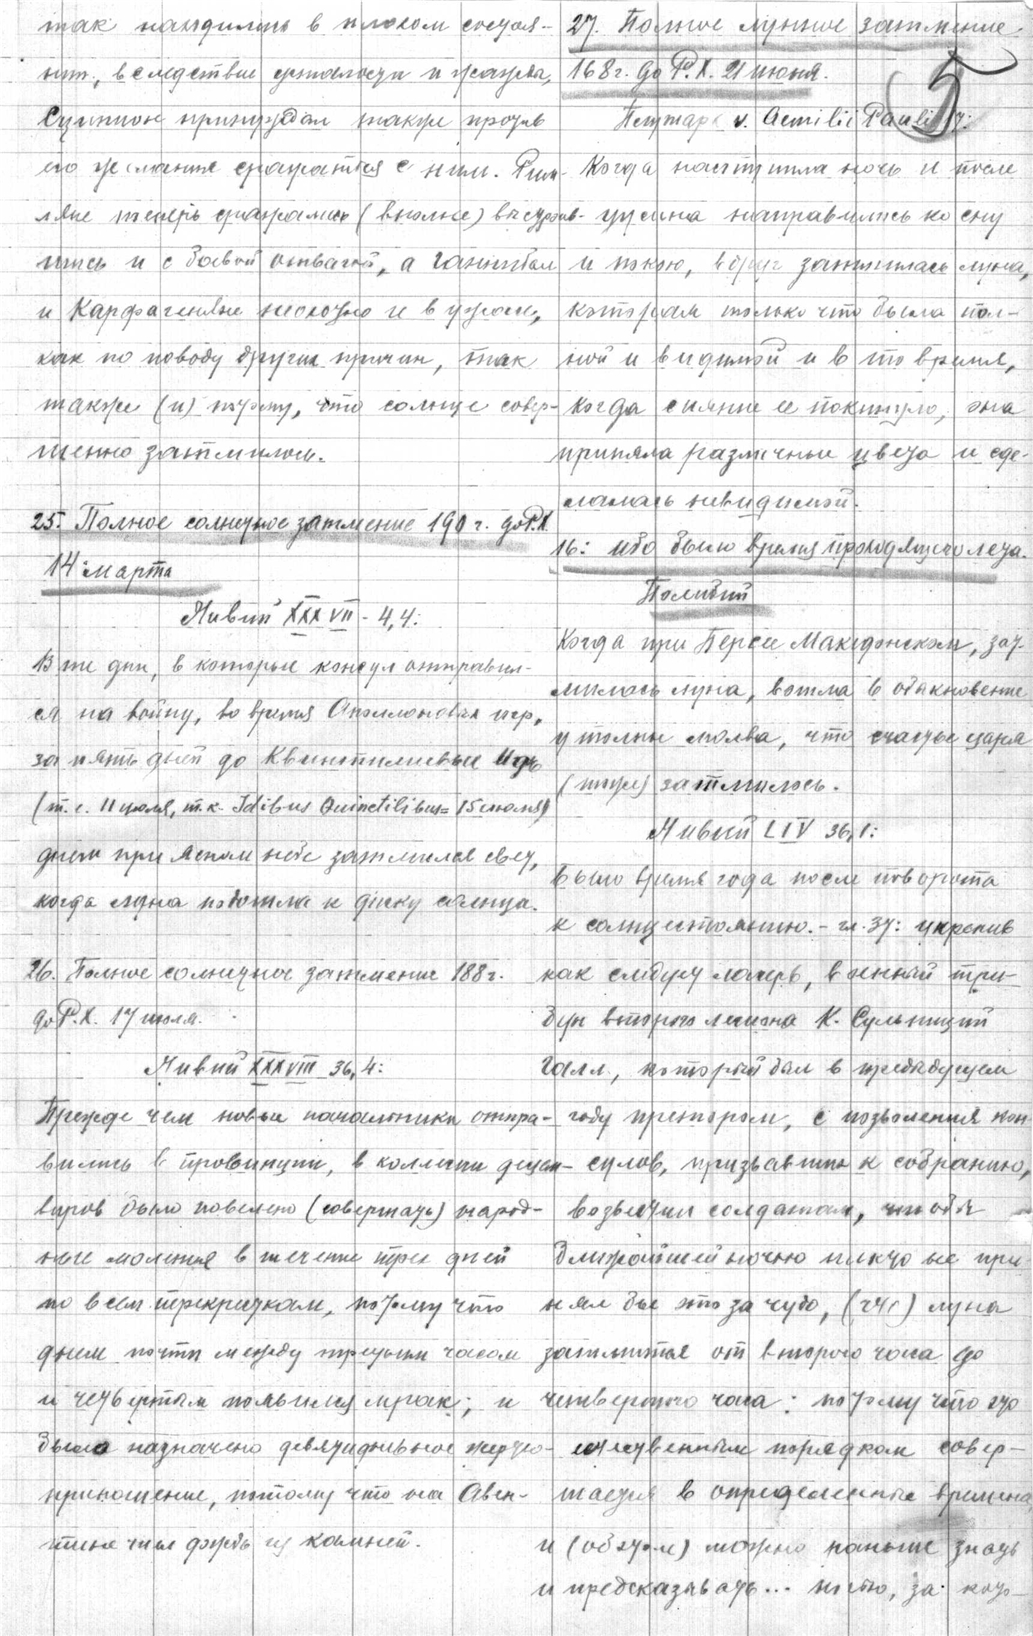 так находились в плохом состоя-
нии, вследствие усталости и жажды,
Сципион принуждал также против
его желания сражаться с ним. Рим-
ляне теперь сражались (вполне) выстроив-
шись и с боевой отвагой, а Ганнибал
и Карфагеняне неохотно и в ужасе,
как по поводу других причин, так
также (и) потому, что солнце совер-
шенно затмилось.
25. Полное солнечное затмение 190 г. до Р.Х.
14 марта
Ливий XXXVII - 4,4:
В те дни, в которые консул отправил-
ся на войну, во время Аполлоновых игр,
за пять дней до Квинтилиевых Ид
(т.е. 11 июля, т.к. Idibus Quinctilibus = 15 июля)
днем при ясном небе затмился свет,
когда луна подошла к диску солнца.
26. Полное солнечное затмение 188 г.
до Р.Х. 17 июля.
Ливий XXXVIII 36,4:
Прежде чем новые начальники отпра-
вились в провинции, в коллегии децем-
виров было повелено (совершать) народ-
ные моления в течение трех дней
по всем перекресткам, потому что
днем почти между третьим часом
и четвертым появился мрак; и
было назначено девятидневное жертво-
приношение, потому что на Авен-
тине шел дождь из камней.
27. Полное лунное затмение
168 г. до Р.Х. 21 июня.
5
Плутарх v. Aemilii Pauli 17:
Когда наступила ночь и после
ужина направились ко сну
и покою, вдруг затмилась луна,
которая только что была пол-
ной и видимой и в то время,
когда сияние ее покинуло, она
приняла различные цвета и сде-
лалась невидимой.
16: ибо было время проходящего лета.
Полибий
Когда при Персее Македонском, зат-
милась луна, вошла в обыкновение
у толпы молва, что счастье царя
(тоже) затмилось.
Ливий LIV 36,1:
Было время года после поворота
к солнцестоянию. - гл. 37: укрепив
как следует лагерь, военный три-
бун второго легиона К. Сульпиций
Галл, который был в предыдущем
году претором, с позволения кон-
сулов, призвавший к собранию,
возвестил солдатам, чтобы
ближайшей ночью никто не при-
нял бы это за чудо, (что) луна
затмится от второго часа до
четвертого часа: потому что это
естественным порядком совер-
шается в определенные времена
и (об этом) можно раньше знать
и предсказывать... ночью, за кото-